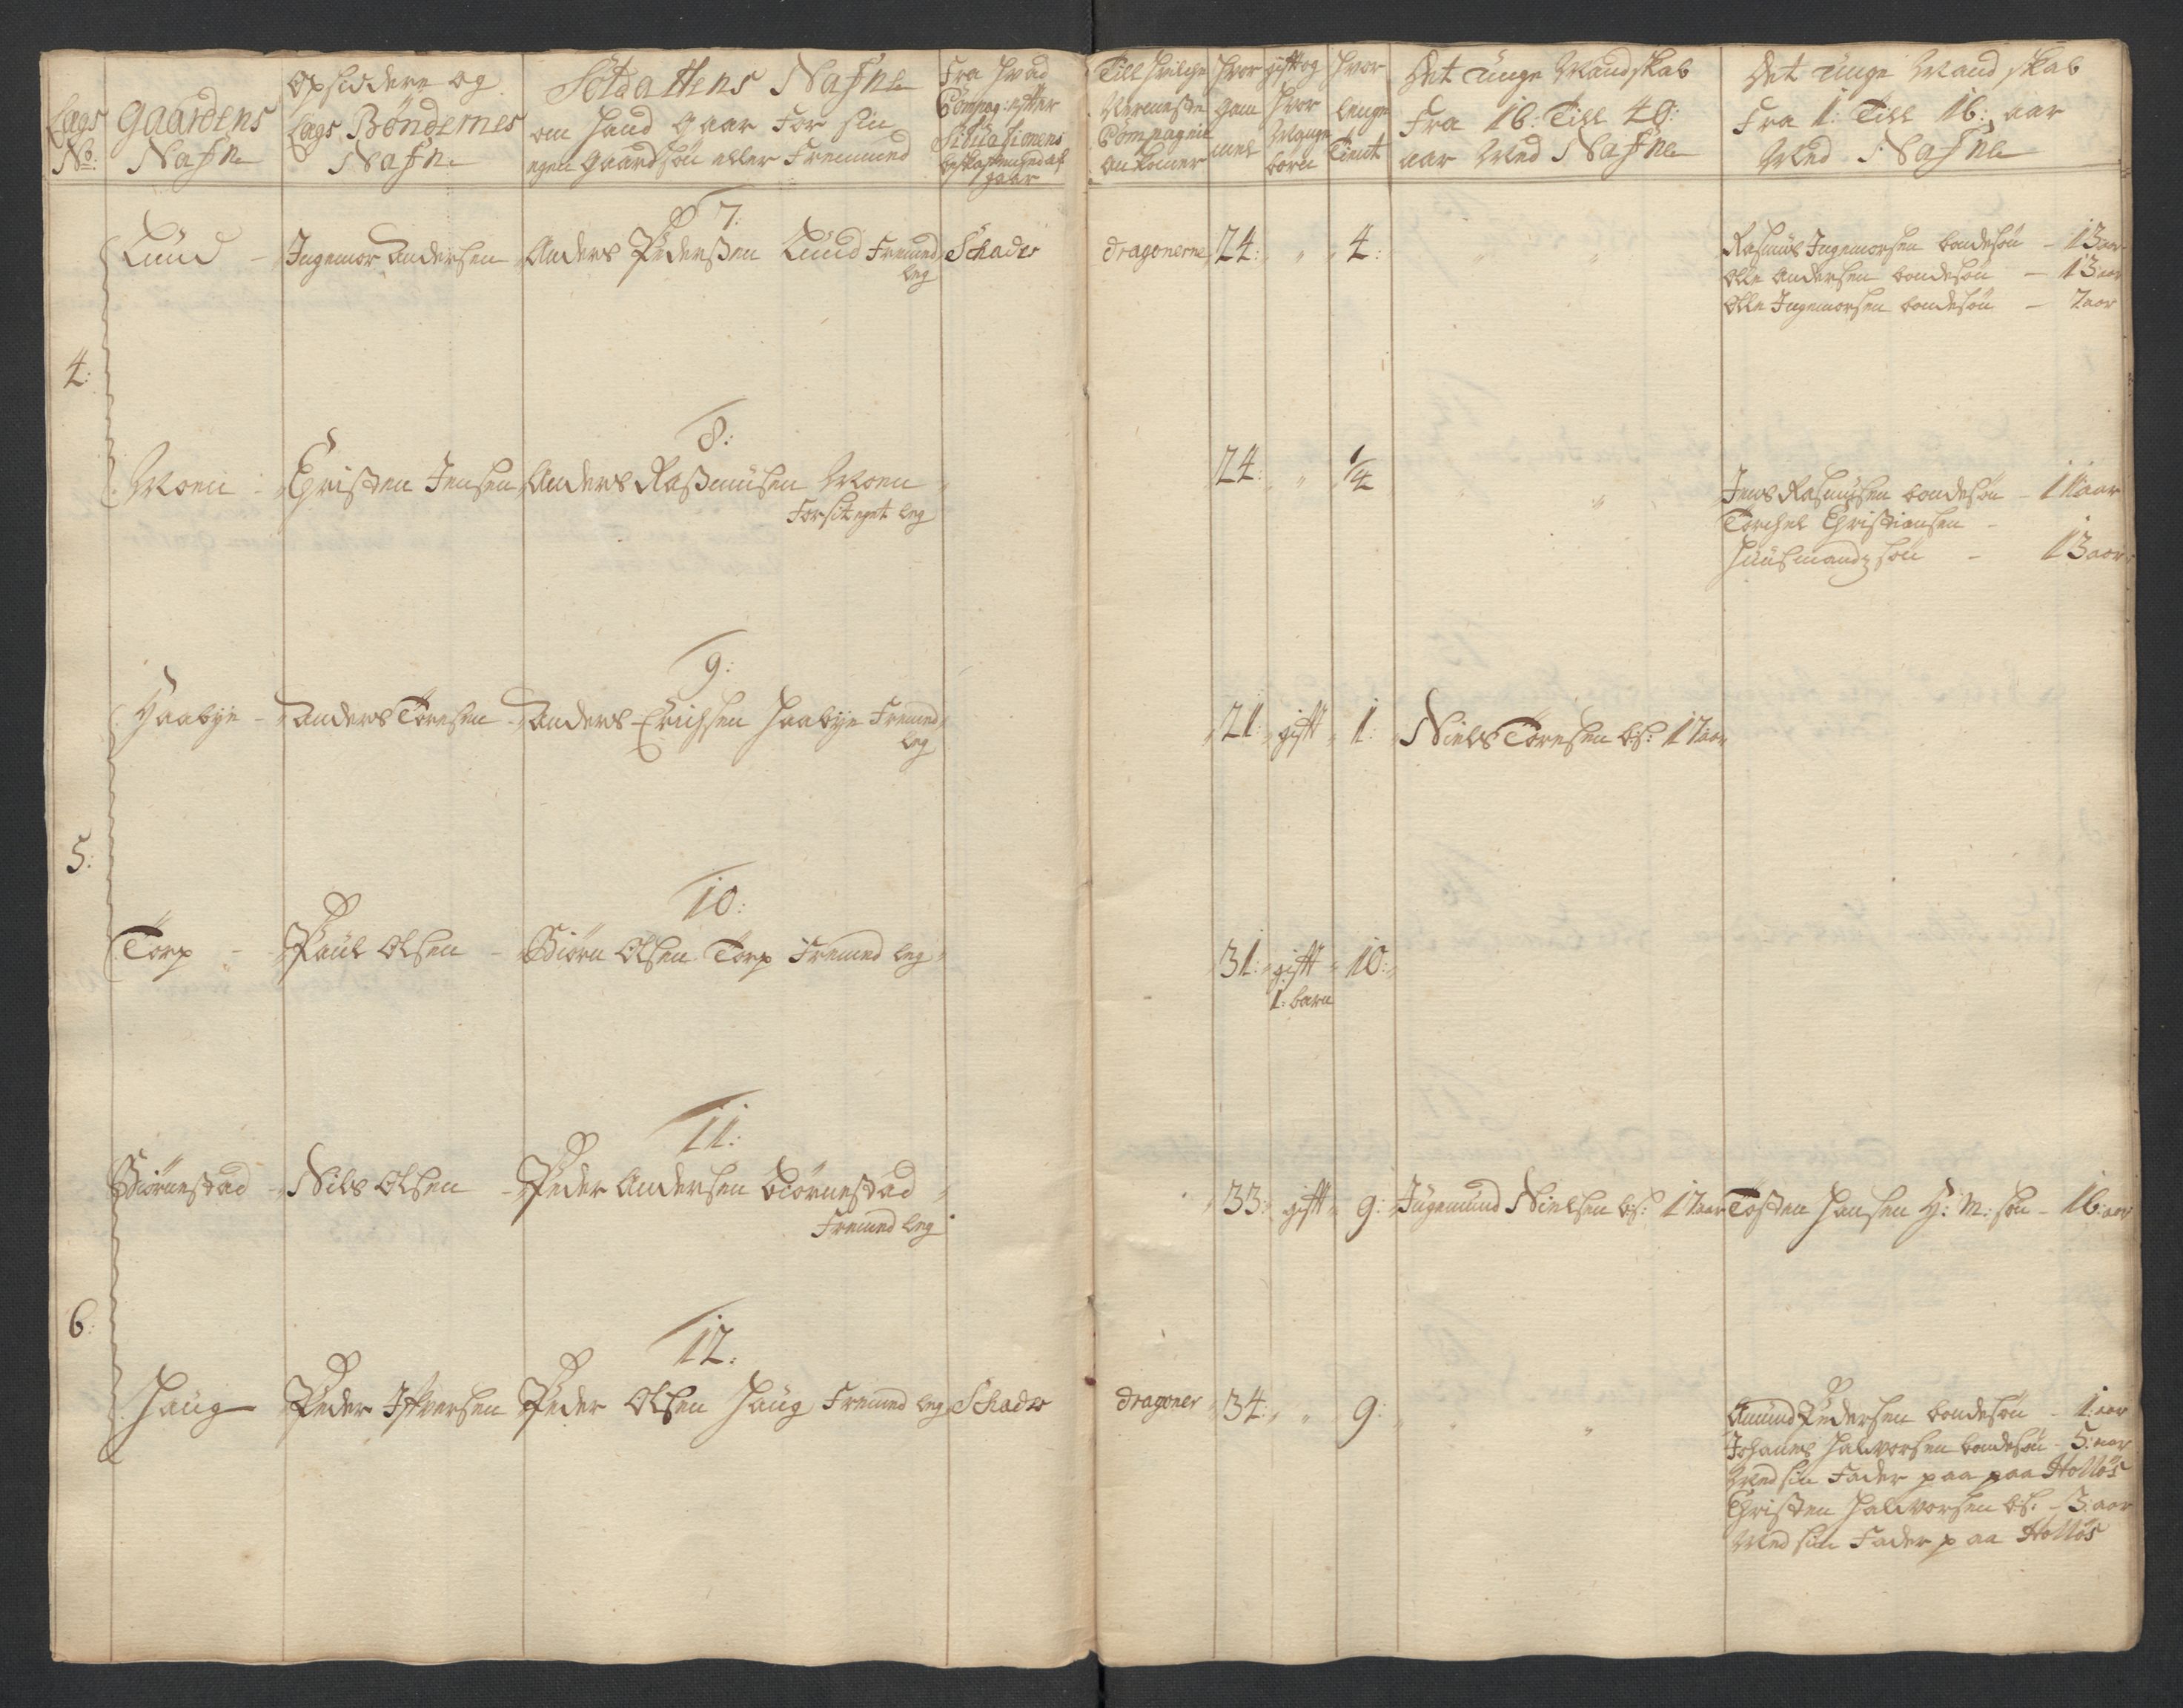 Lægs No:
Gaardens Nafn
Opsiddere og Lægs Böndernes Nafn
Soldattens Nafne om hand gaar for sin egen Gaard, søn eller Fremmed
Fra hvad Compag: efter Situationens afgaar
Till hvilche Nermeste Compagnie an komer
hvor gam mel
gift og hvor Mange börn
hvor lenge Tient
Det unge Mandskab Fra 16: Till 40: aar Med Nafne
Det unge Mandskab Fra 1: Till 16: aar Med Nafne
4:
7:
Lund - Ingemor Andersen Anders Pederßen Lund Fremed leg Schades dragonerne 24: " 4: " "
Rasmus Ingemorsen bondesøn - 13 aar
Olle Andersen bondesøn - 13 aar
Olle Ingemorsen bondesøn - 7 aar
8:
Moen - Christen Jensen Anders Raßmusen Moen
For sit eget leg
24: " 1/4 " "
Jens Rasmusen bondesøn - 11 aar
Torchel Christiansen -
Huusmandz søn - 13 aar
5:
9:
Haabye - Anders Toresen - Anders Erichsen Haabye Fremed leg
21: gift 1: Niels Toresen bs: 17 aar
10:
Torp - Paul Olsen - Biörn Olsen Torp Fremed leg
31: gift 10:
1: barn
6:
11:
Biörnestad - Nils Olsen - Peder Andersen Biörnestad
Fremed leg
33: gift 9: Ingemund Nielsen bs: 17 aar Tosten Hansen H: M: søn - 16: aar
12:
Haug Peder Ifversen Peder Olsen Haug Fremed leg Schades dragoner 34: " 9: " "
Amund Pedersen bondesøn - 1: aar
Johanes Halvorsen bondesøn - 5: aar
Med sin Fader paa paa Holløs
Christen Halvorsen bs. - 3: aar
Med sin Fader paa Holløs